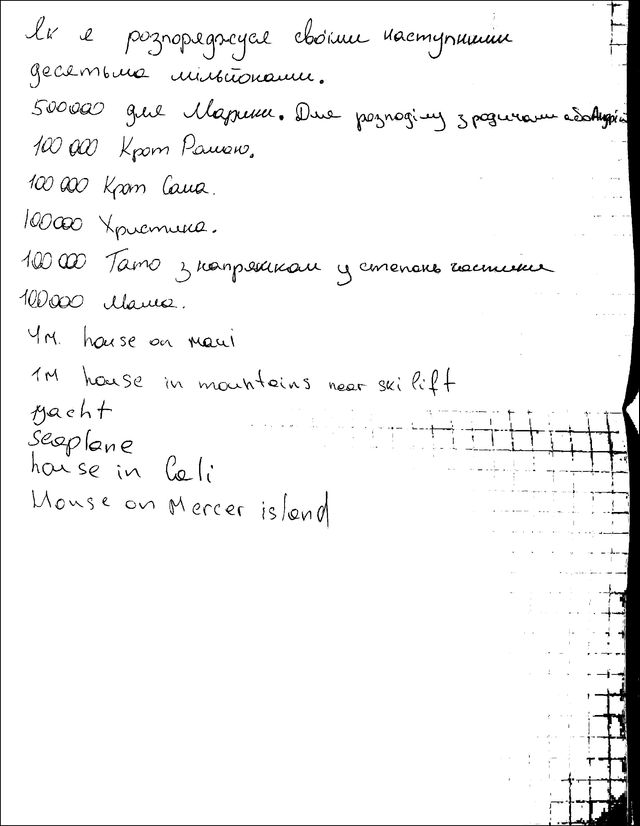 Як я розпоряджуся своїми наступними
десятьма мільйонами.
500000 для Марини. Для розподілу з родичами або Андрій
100 000 Крот Рамаю.
100 000 Крот Саша.
100000 Христина.
100 000 Тато з напряжком у степень частики
100000 Мама.
4м. house on Maui
1M house in mountains near ski lift
yacht
seaplane
house in Cali
House on Mercer island